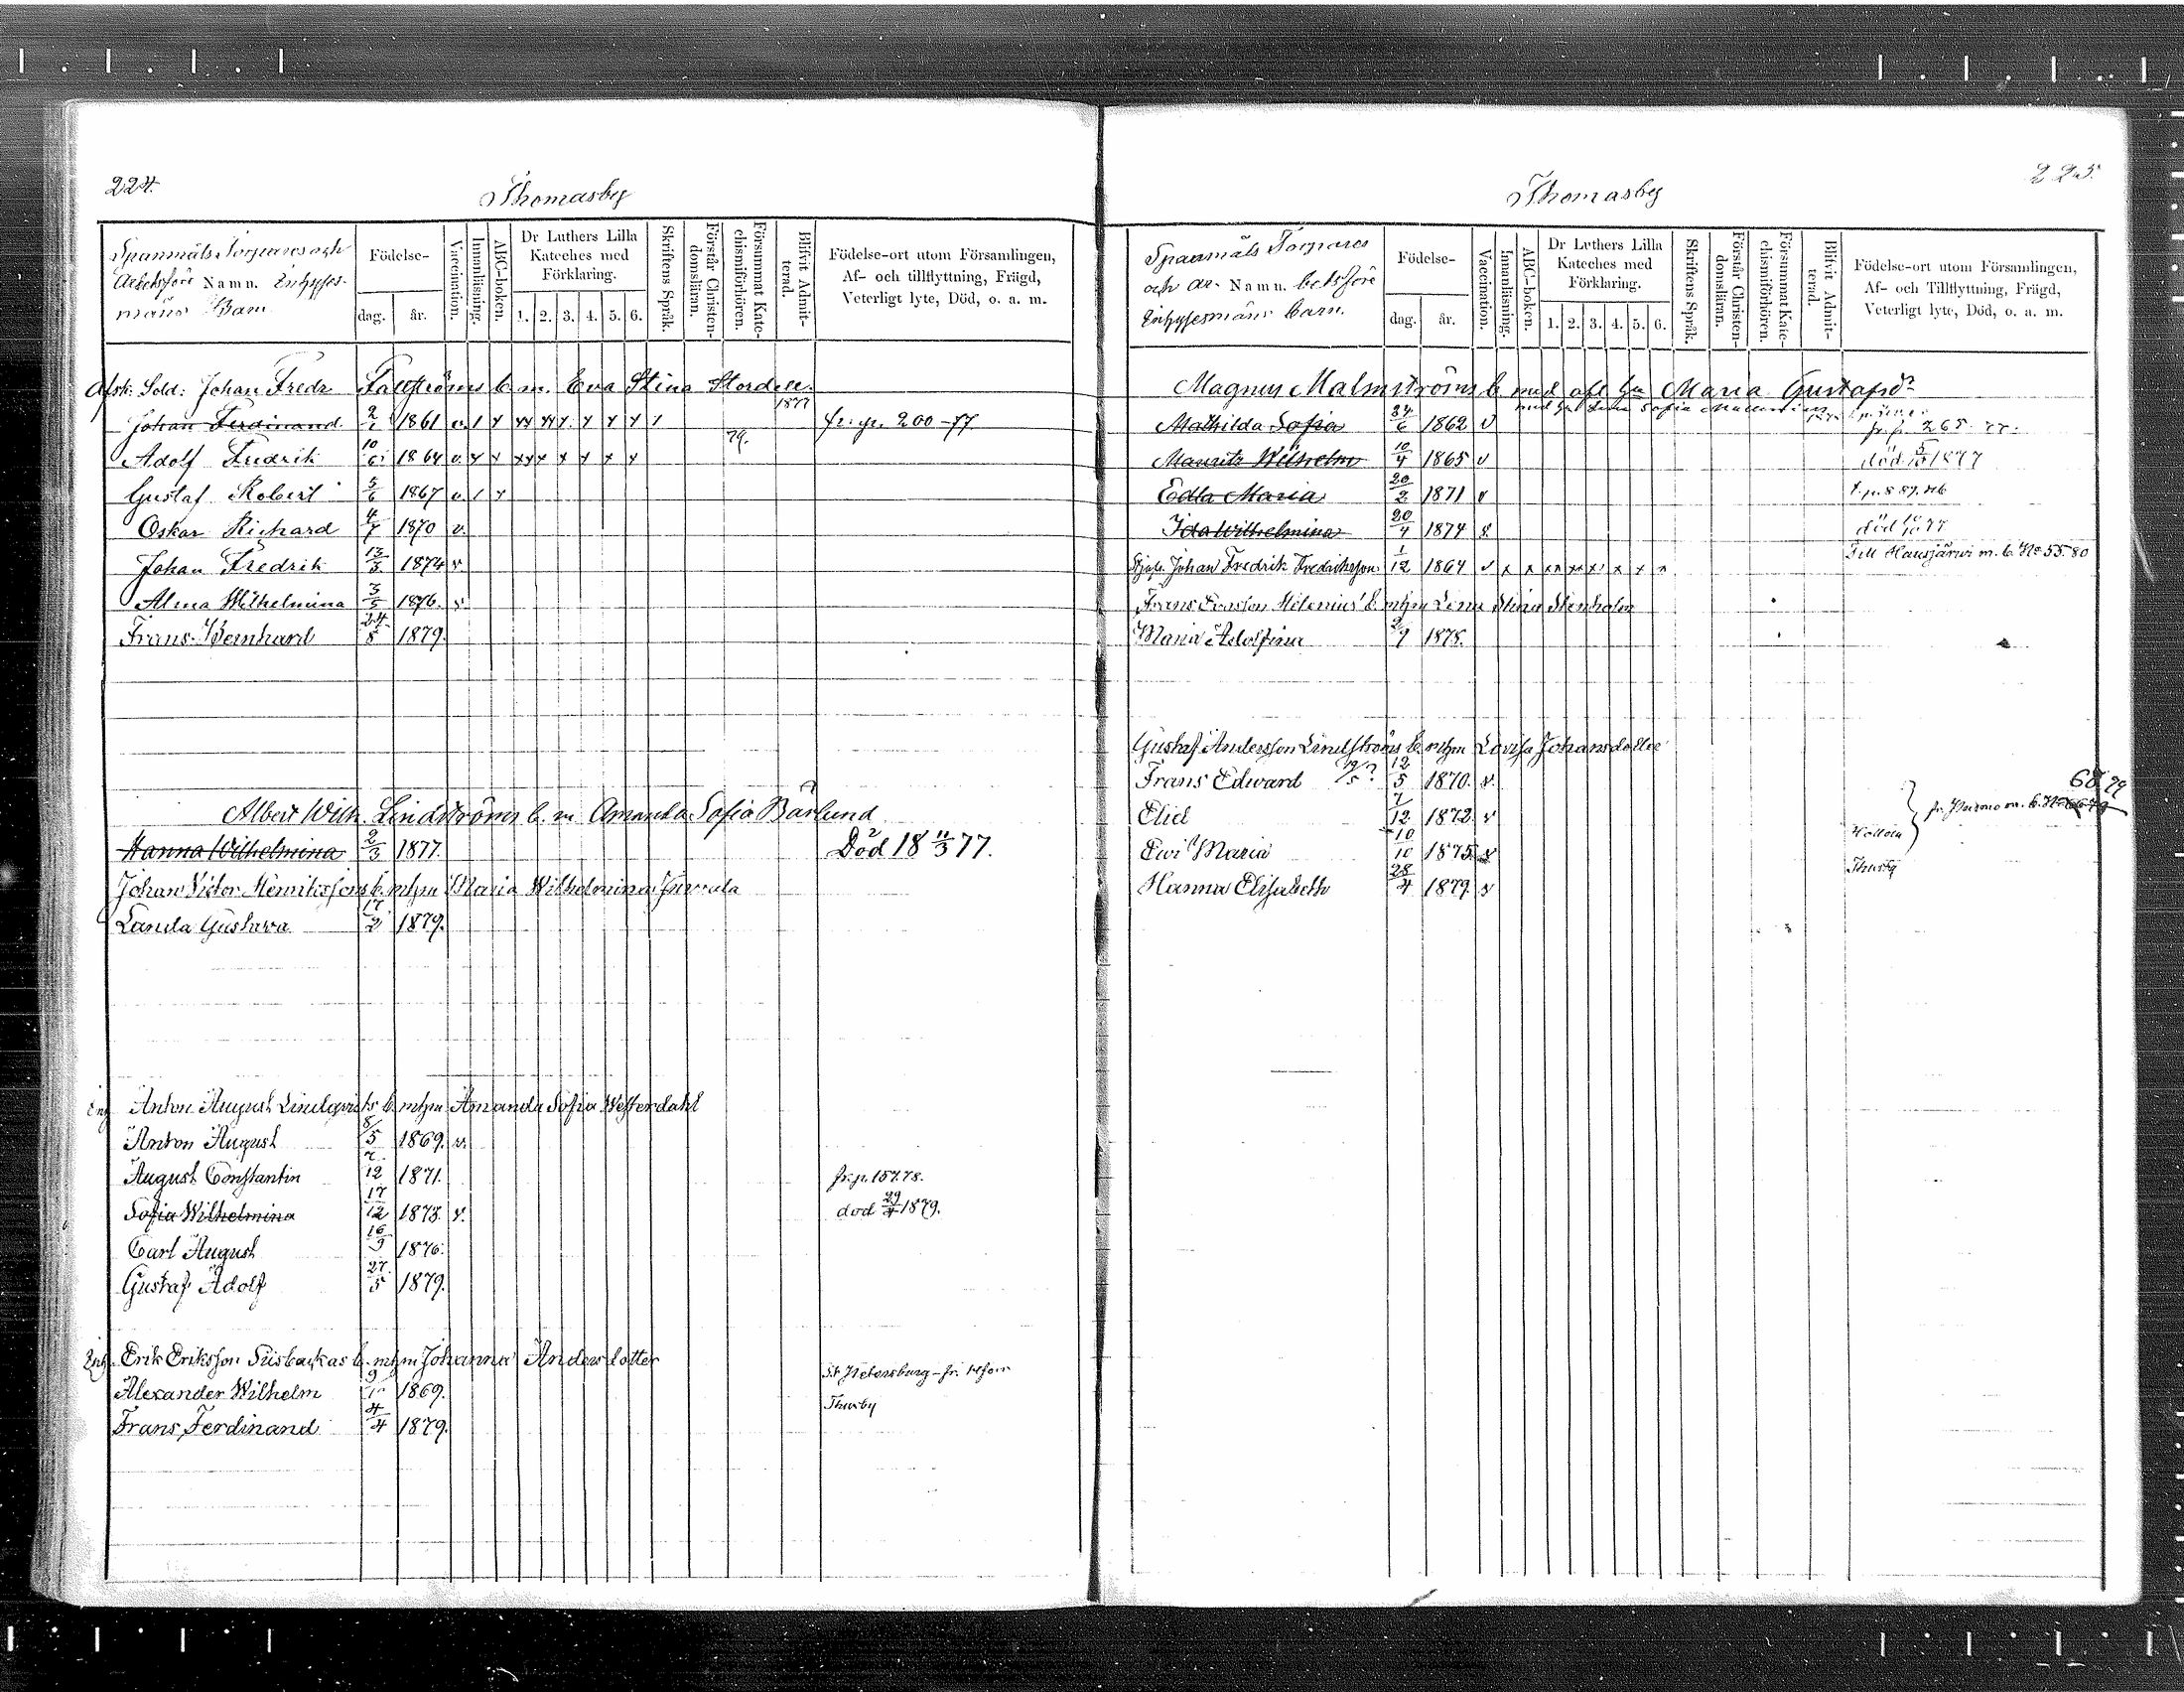 224.
Thomasby
Spanmåls Torpares och
Arbetsföre Namn. Inhyses-
mäns Barn
Födelse-
dag.
år.
Vaccination.
Innanläsning.
ABC-boken.
Dr Luthers Lilla
Kateches med
Förklaring.
1. 2. 3. 4. 5. 6.
Skriftens Språk.
Förstår Christen-
domsläran.
Försummat Kate-
chismiförhören.
Blifvit Admit-
terad.
Födelse-ort utom Församlingen,
Af- och tillflyttning, Frägd,
Veterligt lyte, Död, o. a. m.
Afsk. Sold: Johan Fredr b. m. Eva Stina
1877
Johan Ferdinand 1861 v. fr. p. 200-77
79.
Adolf Fredrik 10/6 1864 v.
Gustaf Robert 5/6 1867 v.
Oskar Richard 4/7 1870 v.
Johan Fredrik 13/3 1874 v
Alma Wilhelmina 3/5 1876. v.
Frans Bernhard 24/8 1879.
Albert Wilh. Lindströms b. m. Amanda Sofia Barlund
Hanna Wilhelmina 2/3 1877. Död 18 11/3 77.
Johan Victor Henrikssons b. m hm Maria Wilhelmina
Landa Gustava 17/2 1879.
Inh Anton August Lindqvists b. m hm Amanda Sofia Westerdahl
Anton August 8/5 1869. v.
August Constantin 12 1871. fr. p. 157.78.
Sofia Wilhelmina 17/12 1873. v. död 29/4 1879.
Carl August 16/9 1876.
Gustaf Adolf 27/5 1879.
Inh. Erik Eriksson b. m hm Johanna Andersdotter
Alexander Wilhelm 1869. St Petersburg - fr. Hfors
Frans Ferdinand 4/4 1879. Thusby
225.
Thomasby
Spanmåls Torpares
och Ar- Namn. betsföre
Inhysesmäns barn.
Födelse-
dag.
år.
Vaccination.
Innanläsning.
ABC-boken.
Dr Luthers Lilla
Kateches med
Förklaring.
1. 2. 3. 4. 5. 6.
Skriftens Språk.
Förstår Christen-
domsläran.
Försummat Kate-
chismiförhören.
Blifvit Admit-
terad.
Födelse-ort utom Församlingen,
Af- och Tillflyttning, Frägd,
Veterligt lyte, Död, o. a. m.
Magnus Malmströms b. med afl hu Maria Gustafsdr
Mathilda Sofia 24/6 1862 v fr. p. 265. 77.
Mauritz Wilhelm 10/4 1865 v död 5/10 1877
Edla Maria 20/2 1871 v
Ida Wilhelmina 20/4 1874 v. död 77
Johan Fredrik Fredriksson 1/12 1864 v Till Hausjärvi m. b. No 55. 80
Frans b. m hm Lena Stina Stenholm
Maria Adolfina 9 1878.
Gustaf Andersson Lindströms b. m hm Lovisa Johansdotter
Frans Edward 19/5? 12/5 1870. v.
Elid 7/12 1872. v
68.79
Evi Maria 10/10 1875. v Hollola
Hanna Elisabeth 28/4 1879. v Thusby